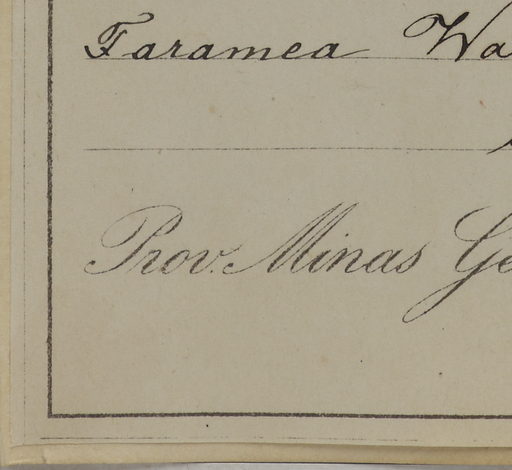 Faramea Wa
Prov. Minas Ge